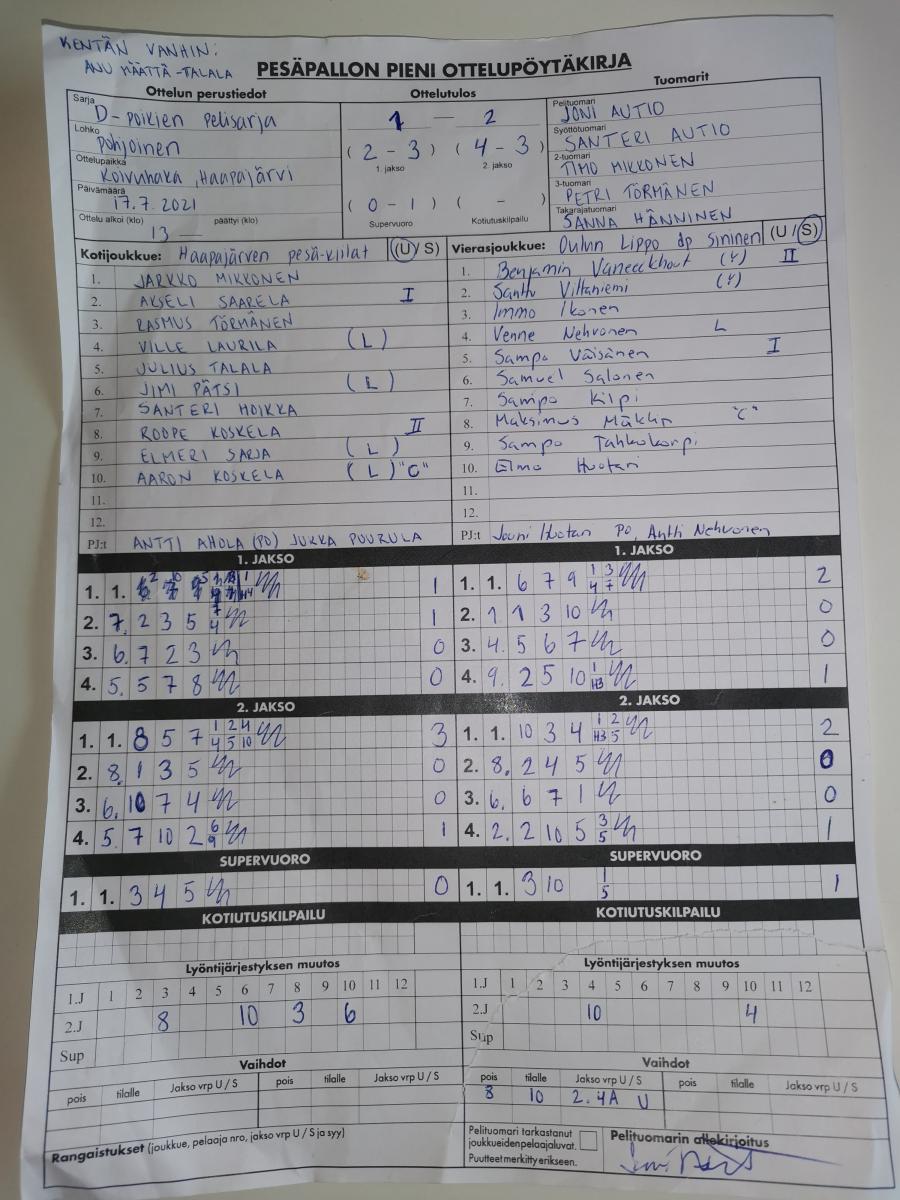 KENTÄN VANHIN:
ANU MÄÄTTÄ-TALALA
PESÄPALLON PIENI OTTELUPÖYTÄKIRJA
Ottelun perustiedot
Sarja
D-poikien pelisarja
Lohko
Pohjoinen
Ottelupaikka
Koivuhaka, Haapajärvi
Päivämäärä
17.7.2021
Ottelu alkoi (klo) päättyi (klo)
13 —
Ottelutulos
1 — 2
( 2 - 3 ) ( 4 - 3 )
1. jakso 2. jakso
( 0 - 1 ) ( - )
Supervuoro Kotiutuskilpailu
Tuomarit
Pelituomari
JONI AUTIO
Syöttötuomari
SANTERI AUTIO
2-tuomari
TIMO MIKKONEN
3-tuomari
PETRI TÖRMÄNEN
Takarajatuomari
SANNA HÄNNINEN
Kotijoukkue: Haapajärven pesä-kiilat (U / S)
1. JARKKO MIKKONEN
2. AKSELI SAARELA I
3. RASMUS TÖRMÄNEN
4. VILLE LAURILA (L)
5. JULIUS TALALA
6. JIMI PÄTSI (L)
7. SANTERI HOIKKA
8. ROOPE KOSKELA II
9. ELMERI SARJA (L)
10. AARON KOSKELA (L) "C"
11.
12.
PJ:t ANTTI AHOLA (PO) JUKKA PUURULA
Vierasjoukkue: Oulun Lippo dp sininen (U / S)
1. Benjamin Vaneeckhout (Y) II
2. Santtu Viltaniemi (Y)
3. Immo Ikonen
4. Venne Nehvonen L
5. Sampo Väisänen I
6. Samuel Salonen
7. Sampo Kilpi
8. Maksimus Mäkkin "C"
9. Sampo Tahkokorpi
10. Elmo Huotari
11.
12.
PJ:t Jouni Huotari PO, Antti Nehvonen
1. JAKSO
1. 1. 1
2. 7. 2 3 5 7 4 1
3. 6. 7 2 3 0
4. 5. 5 7 8 0
2. JAKSO
1. 1. 8 5 7 1 2 4 3
4 5 10
2. 8. 1 3 5 0
3. 6. 10 7 4 0
4. 5. 7 10 2 6 1
9
SUPERVUORO
1. 1. 3 4 5 0
KOTIUTUSKILPAILU
1. JAKSO
1. 1. 6 7 9 1 3 2
4 7
2. 1. 1 3 10 0
3. 4. 5 6 7 0
4. 9. 2 5 10 1 1
H3
2. JAKSO
1. 1. 10 3 4 1 2 2
H3 5
2. 8. 2 4 5 0
3. 6. 6 7 1 0
4. 2. 2 10 5 3 1
5
SUPERVUORO
1. 1. 3 10 1 1
5
KOTIUTUSKILPAILU
Lyöntijärjestyksen muutos
1.J 1 2 3 4 5 6 7 8 9 10 11 12
2.J 8 10 3 6
Sup
Vaihdot
pois tilalle Jakso vrp U / S pois tilalle Jakso vrp U / S
Lyöntijärjestyksen muutos
1.J 1 2 3 4 5 6 7 8 9 10 11 12
2.J 10 4
Sup
Vaihdot
pois tilalle Jakso vrp U / S pois tilalle Jakso vrp U / S
8 10 2.4A U
Rangaistukset (joukkue, pelaaja nro, jakso vrp U / S ja syy)
Pelituomari tarkastanut
joukkueidenpelaajaluvat.
Puutteet merkitty erikseen.
Pelituomarin allekirjoitus